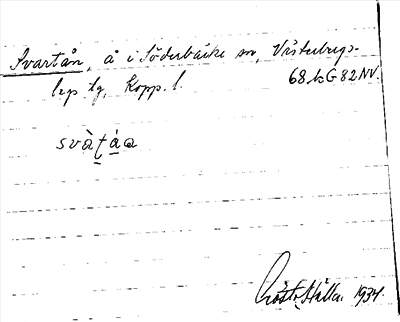 Svartån, å i Söderbärke sn, Västerbergs-
lags tg, Kopp. l. 68 b G 82 NV.
svàṭáa
Gösta Hallen 1934.